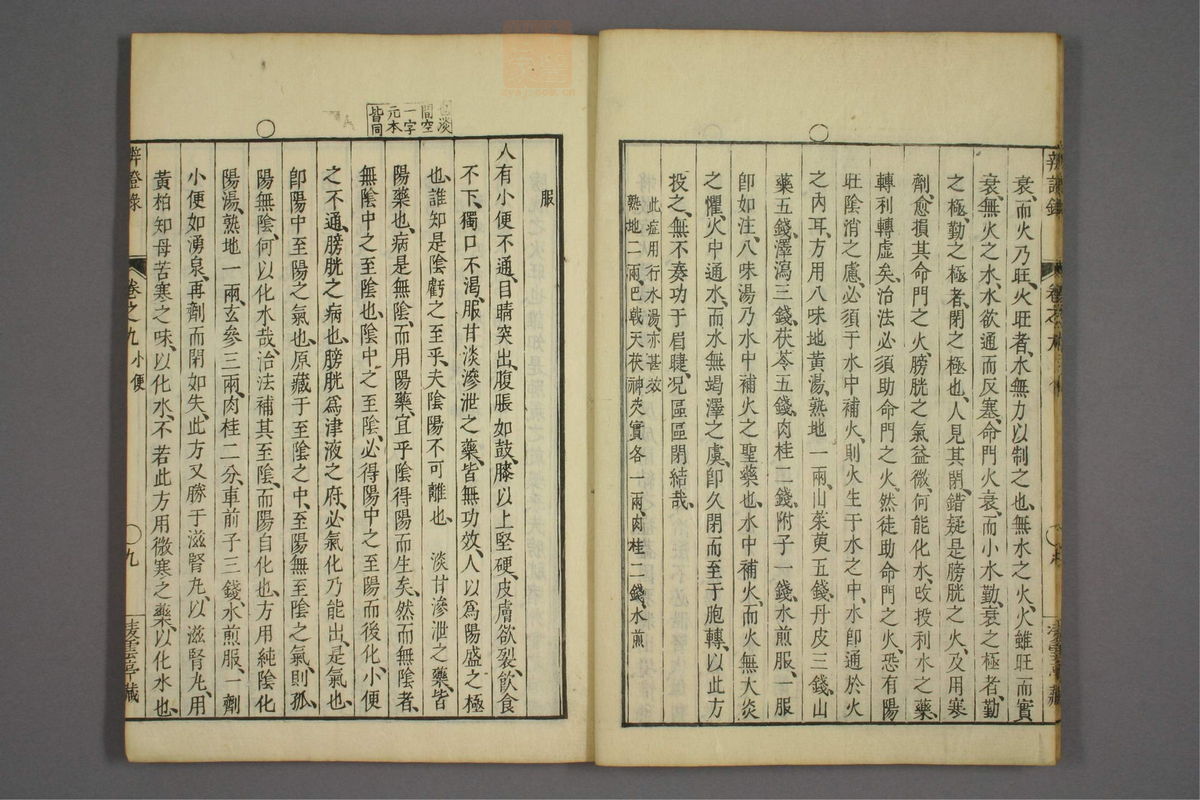 衰、而火乃旺、火旺者、水無力以制之也、無水之火、火雖旺而實
衰、無火之水、水欲通而反塞、命門火衰、而小水勤、衰之極者、勤
之極、勤之極者、閉之極也、人見其閉、錯疑是膀胱之火、及用寒
劑、愈損其命門之火、膀胱之氣益微、何能化水、改投利水之藥、
轉利轉虛矣、治法必須助命門之火、然徒助命門之火、恐有陽
旺陰消之慮、必須于水中補火、則火生于水之中、水卽通於火
之內耳、方用八味地黃湯、熟地一兩、山茱萸五錢、丹皮三錢、山
藥五錢、澤瀉三錢、茯苓五錢、肉桂二錢、附子一錢、水煎服、一服
卽如注、八味湯乃水中補火之聖藥也、水中補火、而火無大炎
之懼、火中通水、而水無竭澤之虞、卽久閉而至于胞轉、以此方
投之、無不奏功于眉睫、况區區閉結哉、
此症用行水湯、亦甚效
熟地二兩、巴戟天茯神芡實各一兩、肉桂二錢、水煎
辨證錄
服
人有小便不通、目睛突出、腹脹如鼓、膝以上堅硬、皮膚欲裂、飲食
不下、獨口不渴、服甘淡滲泄之藥、皆無功效、人以爲陽盛之極
也、誰知是陰虧之至乎、夫陰陽不可離也　淡甘滲泄之藥、皆
陽藥也、病是無陰、而用陽藥、宜乎陰得陽而生矣、然而無陰者、
無陰中之至陰也、陰中之至陰、必得陽中之至陽而後化、小便
之不通、膀胱之病也、膀胱爲津液之府、必氣化乃能出、是氣也、
卽陽中至陽之氣也、原藏于至陰之中、至陽無至陰之氣、則孤
陽無陰、何以化水哉、治法補其至陰、而陽自化也、方用純陰化
陽湯、熟地一兩、玄參三兩、肉桂二分、車前子三錢、水煎服、一劑
小便如湧泉、再劑而閉如失、此方又勝于滋腎丸、以滋腎丸、用
黃柏知母苦寒之味、以化水、不若此方用微寒之藥、以化水也、
辨證錄
卷之九
小便
九
淩雲亭藏
也淡
間空
一字
元本
皆同